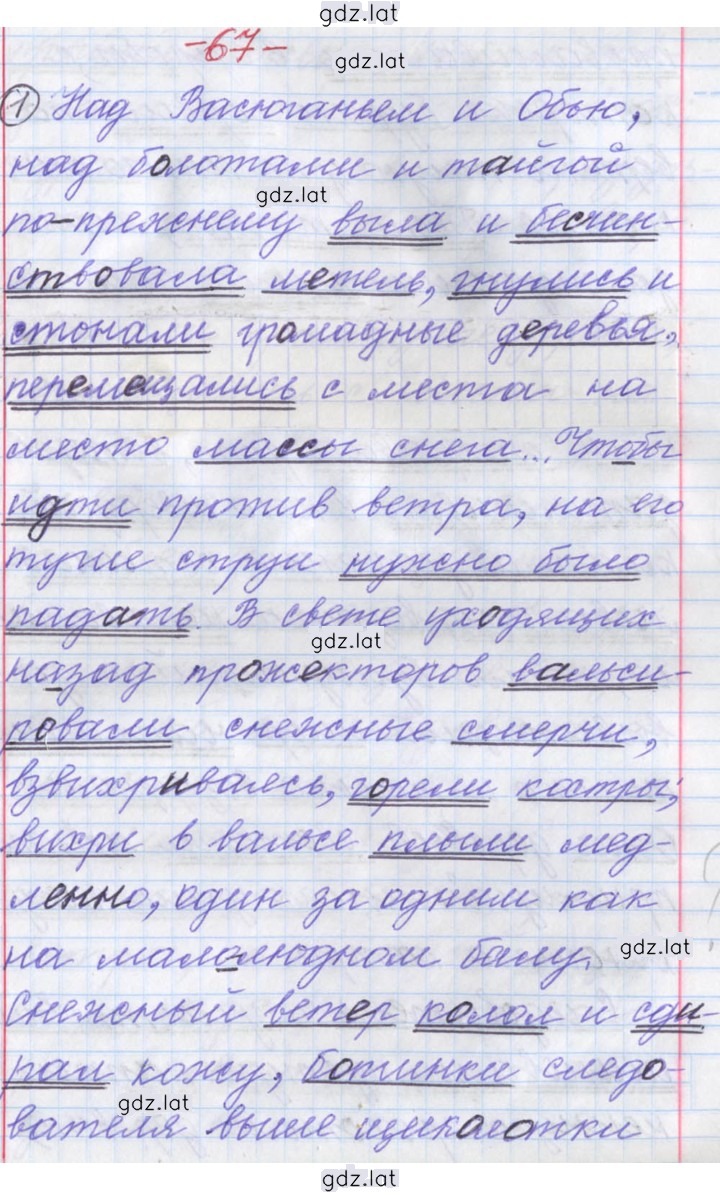 gdz.lat
-67-
gdz.lat
① Над Васюганьем и Обью,
над болотами и тайгой
gdz.lat
по-прежнему выла и бесчин-
ствовала метель, гнулись и
стонали громадные деревья,
перемещались с места на
место массы снега... Чтобы
идти против ветра, на его
тугие струи нужно было
падать. В свете уходящих
gdz.lat
назад прожекторов вальси-
ровали снежные смерчи,
взвихриваясь, горели костры;
вихри в вальсе плыли мед-
ленно, один за одним как
на малолюдном балу.
gdz.lat
Снежный ветер колол и сди-
рал кожу, ботинки следо-
gdz.lat
вателя выше щиколотки
gdz.lat